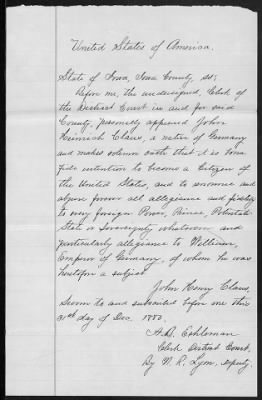 United States of America.
State of Iowa, Iowa County, ss:
Before me, the undersigned, Clerk of
the District Court in and for said
County, personally appeared John
Heinrich Claus, a native of Germany
and makes solemn oath that it is bona
fide intention to become a Citizen of
the United States, and to renounce and
abjure forever all allegiance and fidelity
to every foreign Power, Prince, Potentate
State or Sovereignty whatsoever and
particularly allegiance to William,
Emperor of Germany, of whom he was
heretofore a subject
John Henry Claus,
Sworn to and subscribed before me this
31st day of Dec. 1883.
A. B. Eshleman
Clerk District Court,
By W. R. Lyon, deputy.